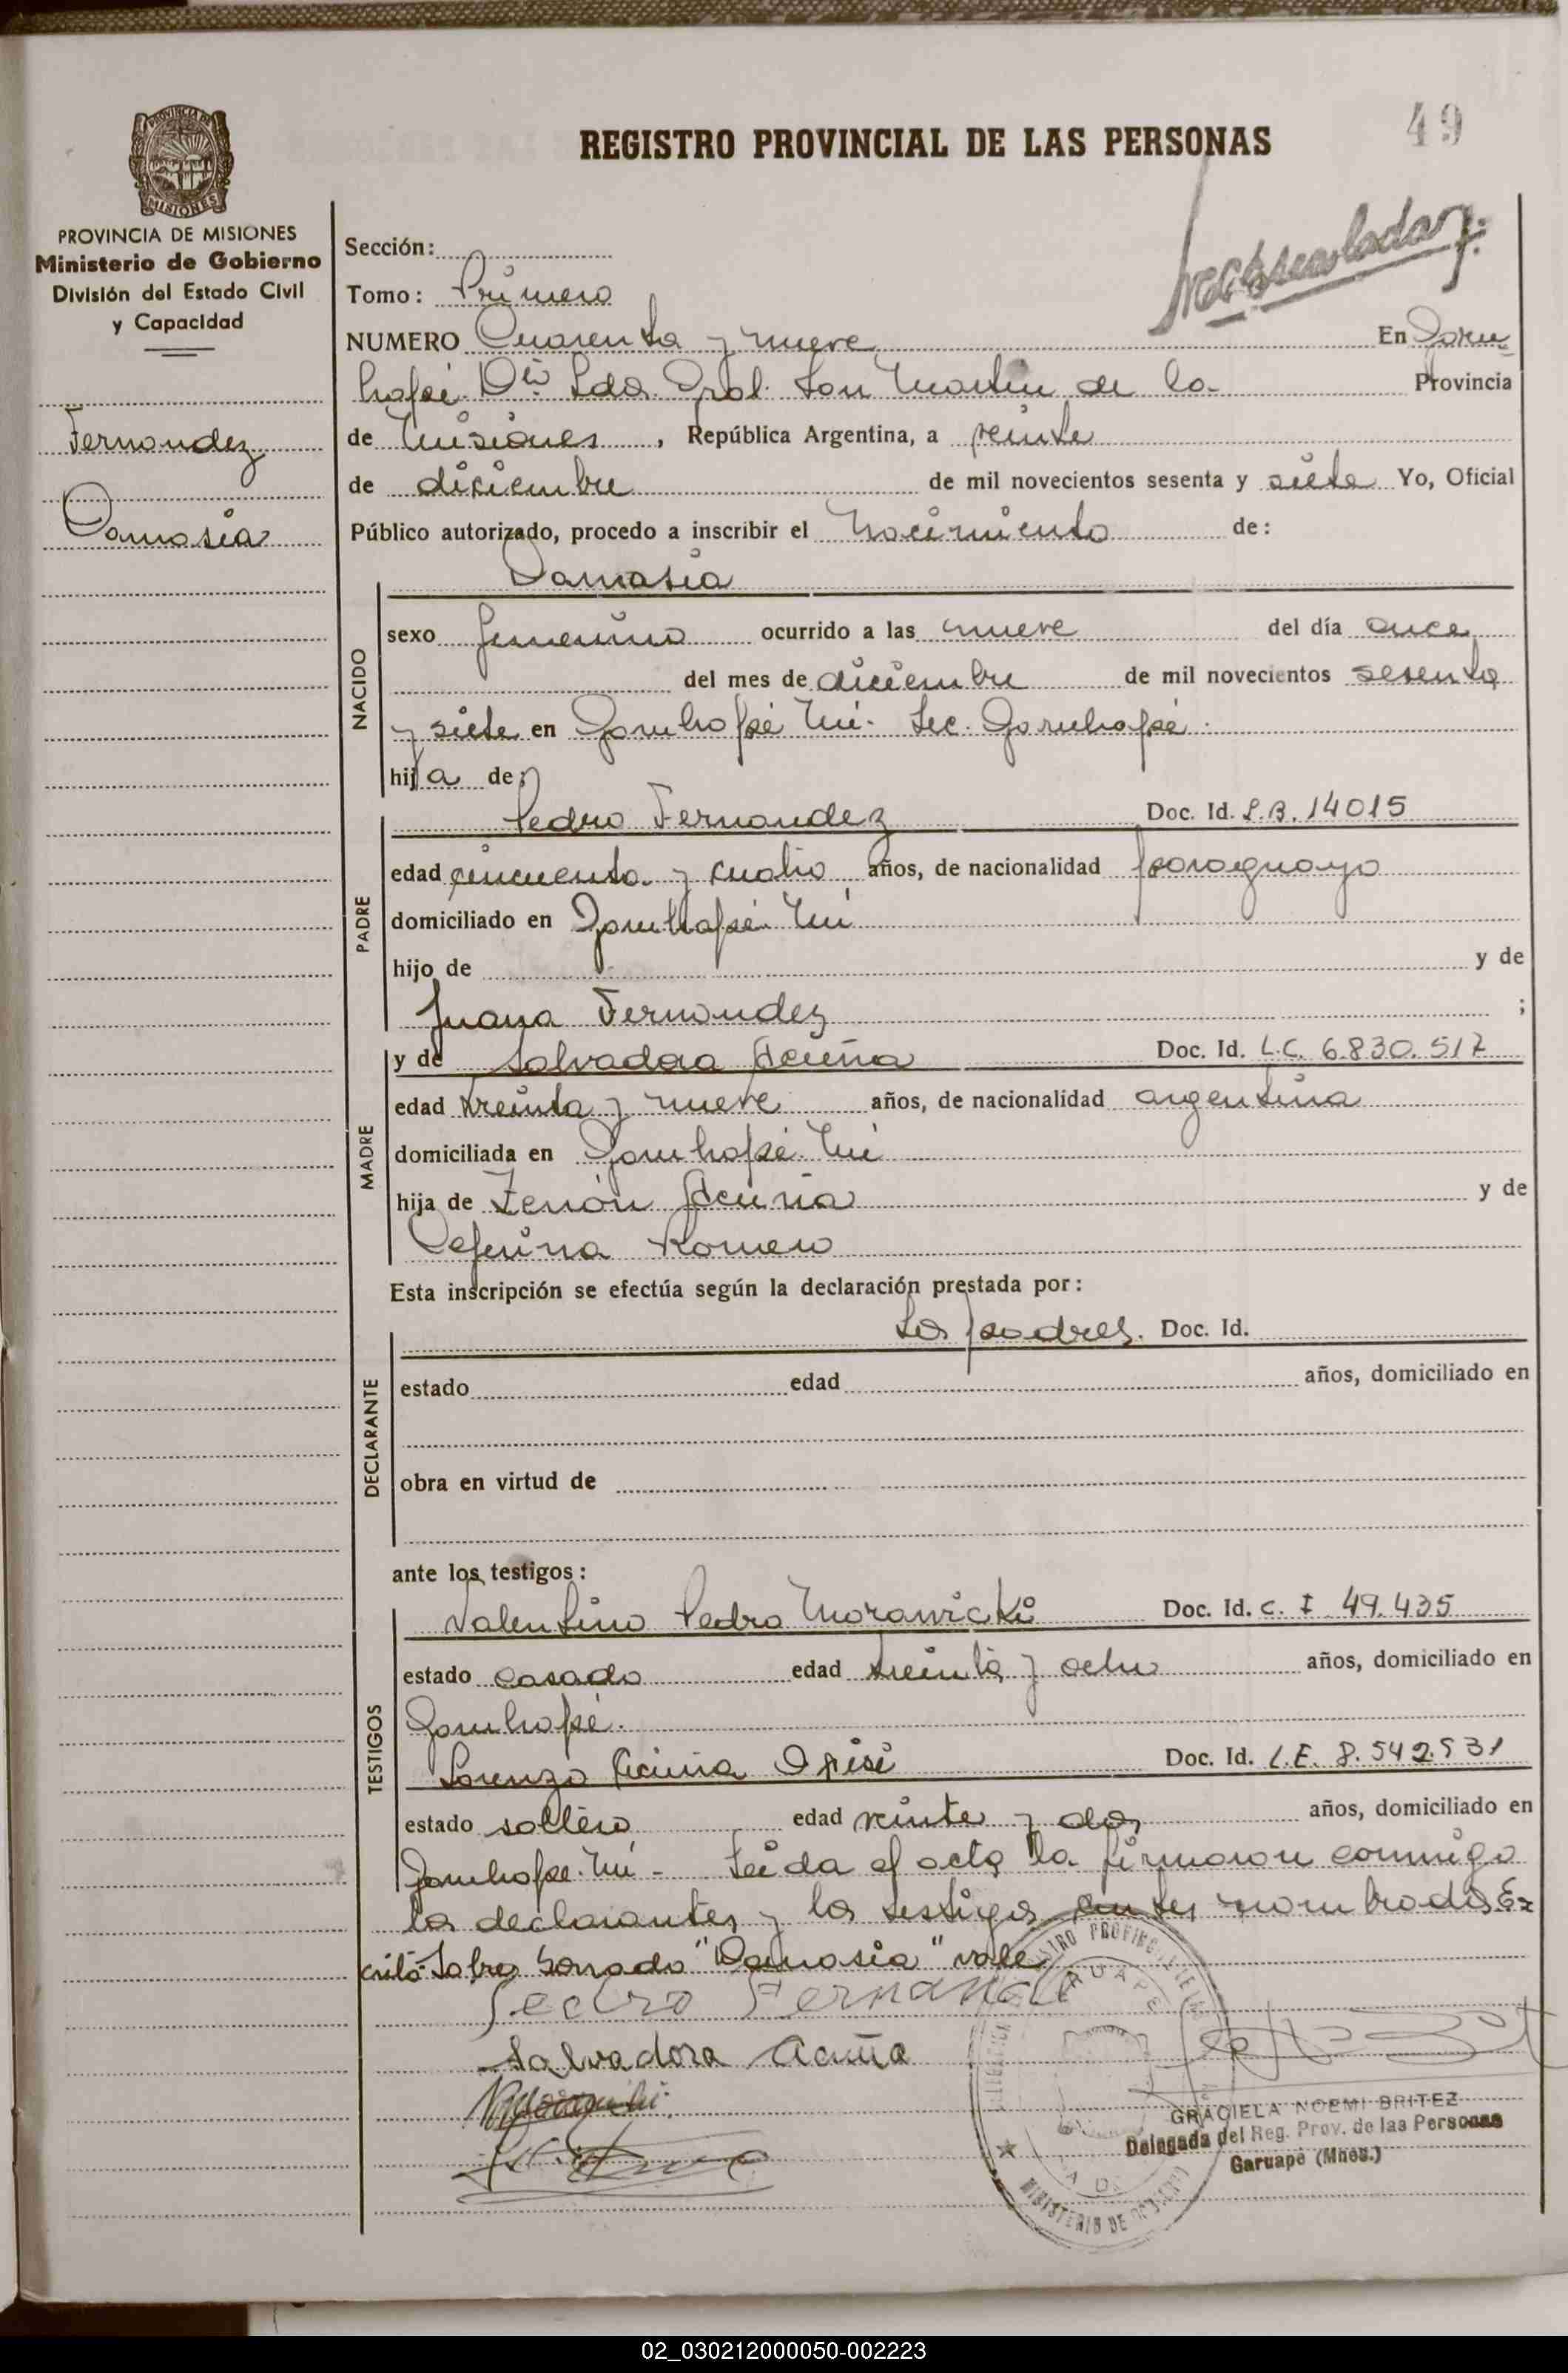 49
REGISTRO PROVINCIAL DE LAS PERSONAS
PROVINCIA DE MISIONES
MISIONES
PROVINCIA DE MISIONES
Ministerio de Gobierno
División del Estado Civil
y Capacidad
Fernandez
Damasia
Sección:
Tomo: Primero
NUMERO Cuarenta y nueve En Garu
hapé Dto Ldor. Gral. San Martin de la Provincia
de Misiones, República Argentina, a veinte
de diciembre de mil novecientos sesenta y siete Yo, Oficial
Público autorizado, procedo a inscribir el Nacimiento de:
Damasia
NACIDO
sexo femenino ocurrido a las nueve del día once
del mes de diciembre de mil novecientos sesenta
y siete en Garuhapé Mi. Sec. Garuhapé.
hija de:
PADRE
Pedro Fernandez Doc. Id. L.B. 14015
edad cincuenta y cuatro años, de nacionalidad paraguayo
domiciliado en Garuhapé Mi
hijo de y de
Juana Fernandez ;
MADRE
y de Salvadora Acuña Doc. Id. L.C. 6.830.517
edad treinta y nueve años, de nacionalidad argentina
domiciliada en Garuhapé Mi
hija de Zenón Acuña y de
Ceferina Romero
Esta inscripción se efectúa según la declaración prestada por:
DECLARANTE
Los padres. Doc. Id.
estado edad años, domiciliado en
obra en virtud de
ante los testigos:
TESTIGOS
Valentino Pedro Morawicki Doc. Id. C. I 49.435
estado casado edad treinta y ocho años, domiciliado en
Garuhapé.
Lorenzo Acuña Doc. Id. L.E. 8.542.531
estado soltero edad veinte y dos años, domiciliado en
Garuhape Mi - Leida el acta la firmaron conmigo
los declarantes y los testigos antes nombrados Es
crito Sobre borrado "Damasia" vale
Pedro Fernandez
Salvadora Acuña
GRACIELA NOEMI BRITEZ
Delegada del Reg. Prov. de las Personas
Garuapé (Mnes.)
MINISTERIO DE GOBIERNO
02_030212000050-002223